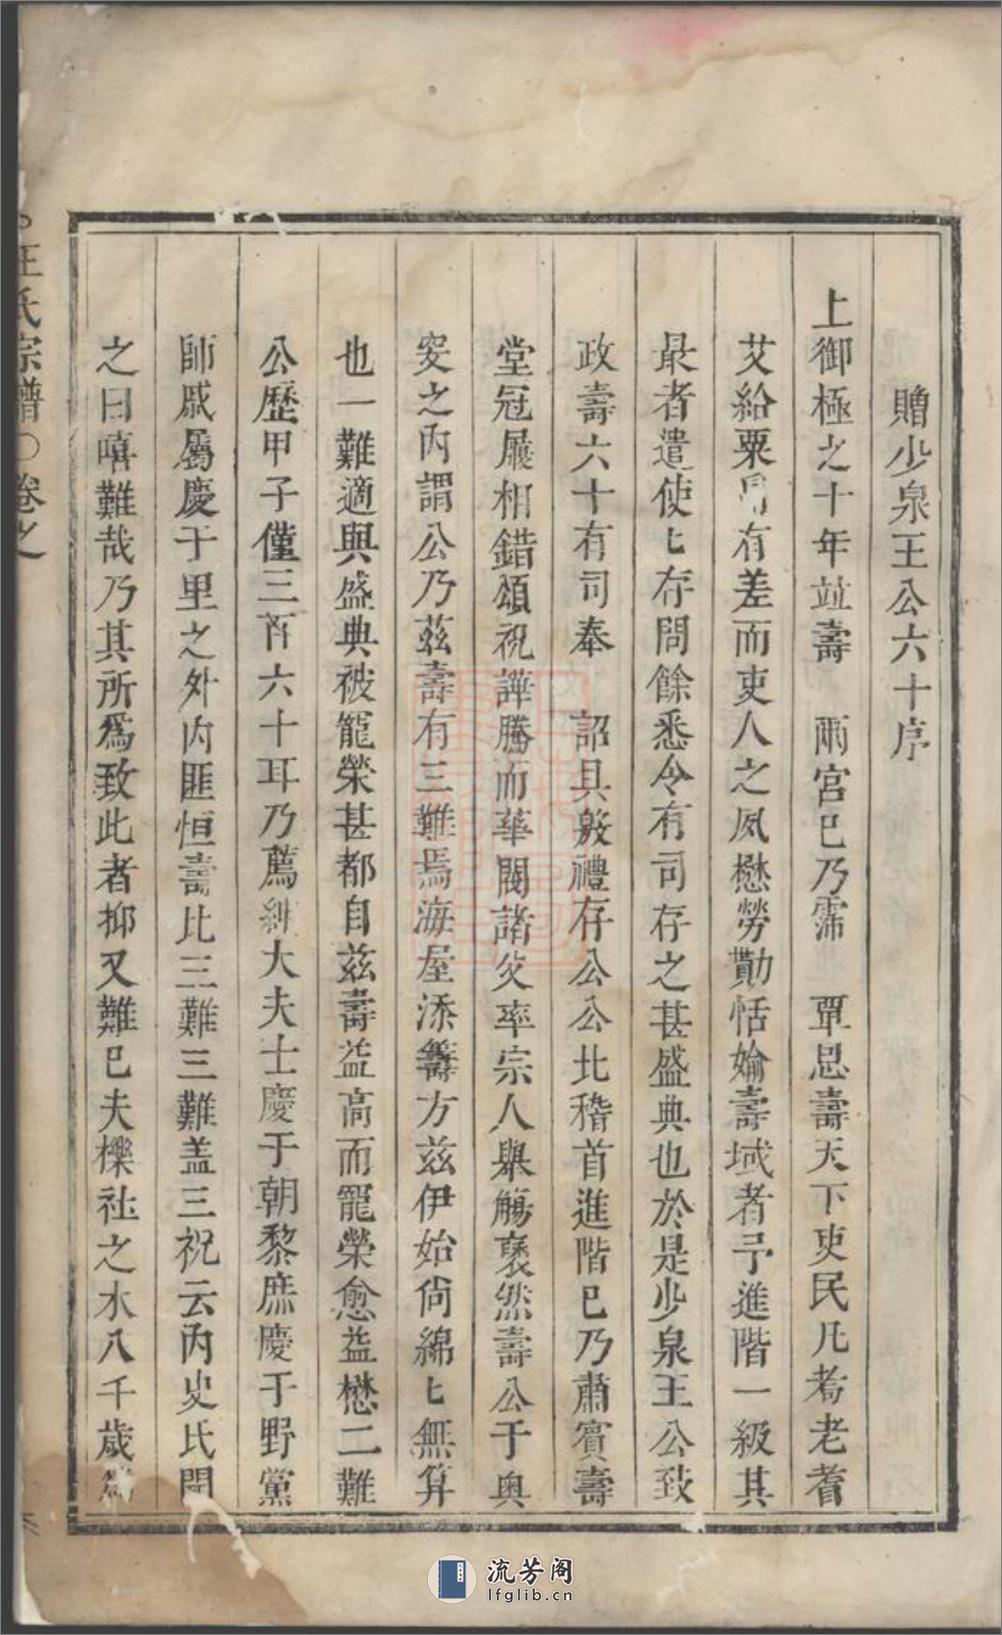 贈少泉王公六十序
上御極之十年並壽　兩宮已乃霈　覃恩壽天下吏民凡耈老耆
艾給粟帛有差而吏人之夙懋勞勩恬婾壽域者予進階一級其
最者遣使匕存問餘悉令有司存之甚盛典也於是少泉王公致
政壽六十有司奉　詔具敦禮存公公北稽首進階已乃肅賓壽
堂冠履相錯頌祝譁騰而華閥諸父率宗人舉觴褎然壽公于奥
安之丙謂公乃茲壽有三難焉海屋添籌方茲伊始尙綿匕無算
也一難適與盛典被寵榮甚都自茲壽益高而寵榮愈益懋二難
公歷甲子僅三百六十耳乃薦紳大夫士慶于朝黎庶慶于野黨
師戚屬慶于里之外內匪恒壽比三難三難盖三祝云丙史氏聞
之曰嘻難哉乃其所爲致此者抑又難已夫櫟社之木八千歲爲
王氏宗譜〇卷之
流芳阁
lfglib.cn